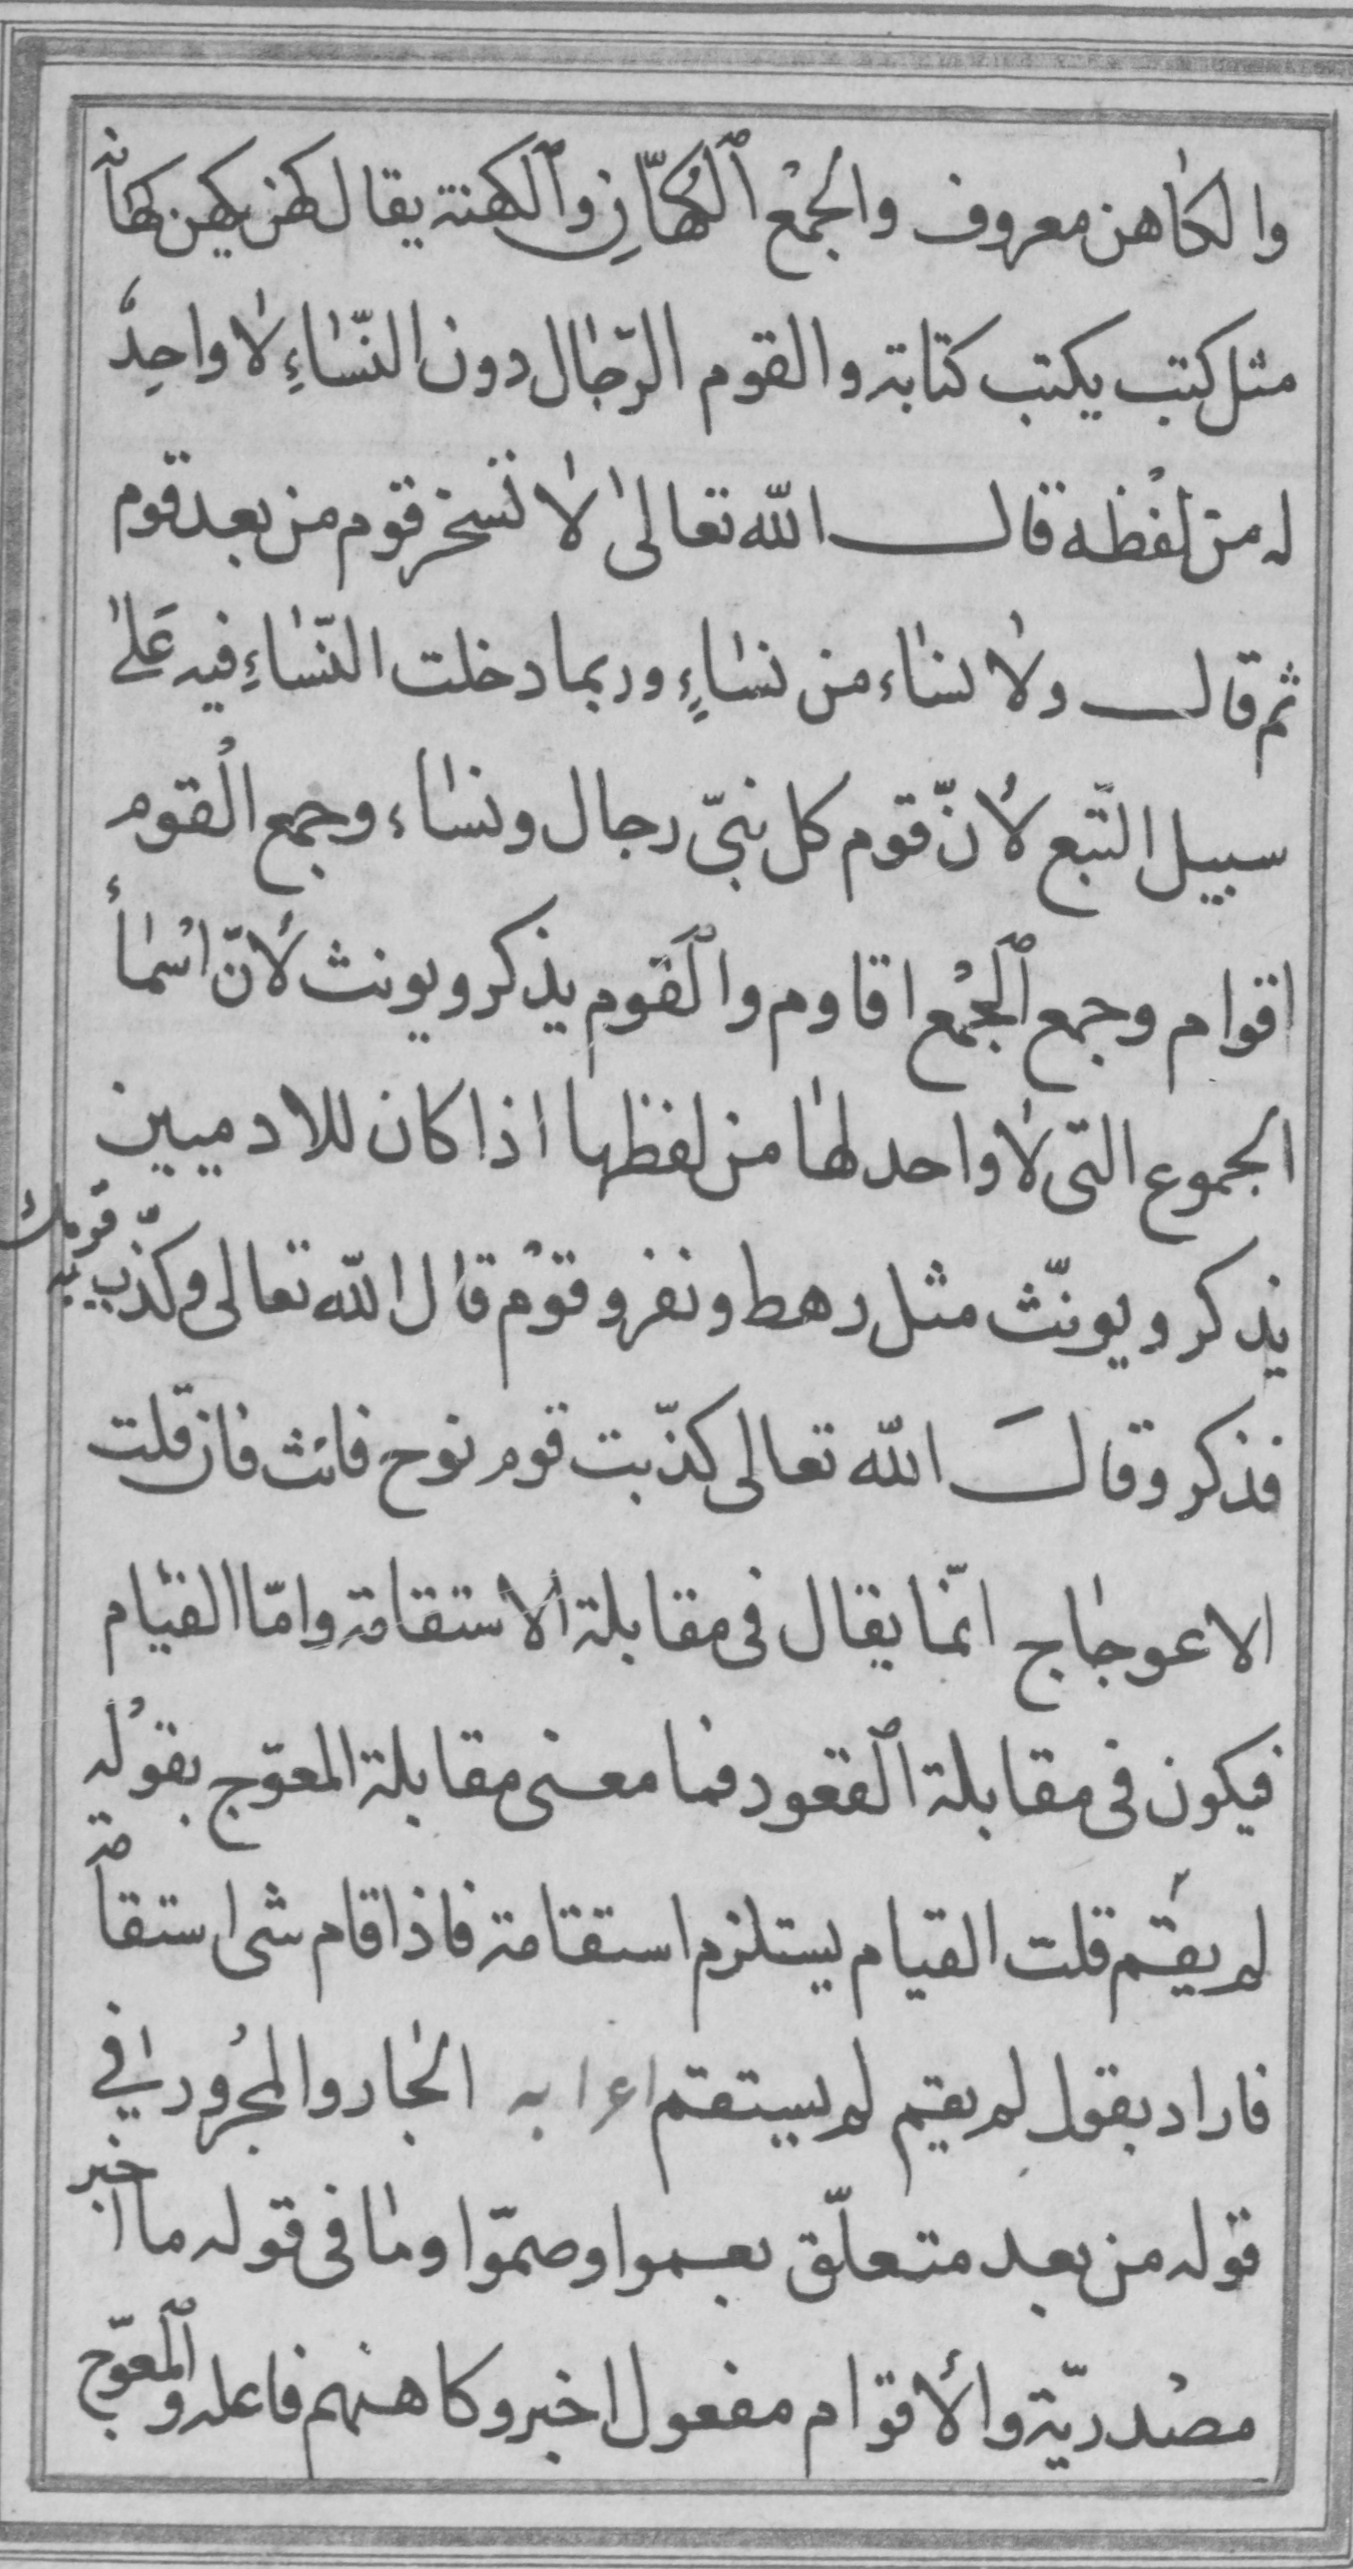 والكاهن معروف والجمْع ٱلكُهّانِ وٱلكهنة يقال كهن يكهن كهانة
مثل كتب يكتب كتابة والقوم الرّجال دون النّسَاءِ لا واحِدُ
له من لفْظه قال الله تعالىٰ لا تسخر قوم من بعد قوم
ثم قال ولا نساء من نسَاءٍ وربما دخلت النّسَاءِ فيه عَلىٰ
سبيل التّبع لأنّ قوم كل نبىّ رجال ونساء وجمع الْقوم
اقوام وجمع ٱلجمْع اقاوم وٱلقوم يذكر ويونث لأنّ اسْماأ
الجموع التى لا واحد لها من لفظها اذا كان للادميين
يذكر ويونّث مثل رهط ونفر وقوْم قال الله تعالى وكذّب به قومك
فذكر وقالَ الله تعالى كذّبت قوم نوح فانث فان قلت
الاعوجاج انّما يقال فى مقابلة الاستقامة وامّا القيام
فيكون فى مقابلة ٱلقعود فما معنى مقابلة المعوّج بقوْله
لم يقم قلت القيام يستلزم استقامة فاذا قام شى استقامة
فاراد بقول لم يقم لم يستقم اعرابه الجار والمجرُور في
قوله من بعد متعلّق بعموا وصمّوا وما فى قوله ما اخبر
مصْدريّة والأقوام مفعول اخبر وكاهنهم فاعله وٱلمعوّج